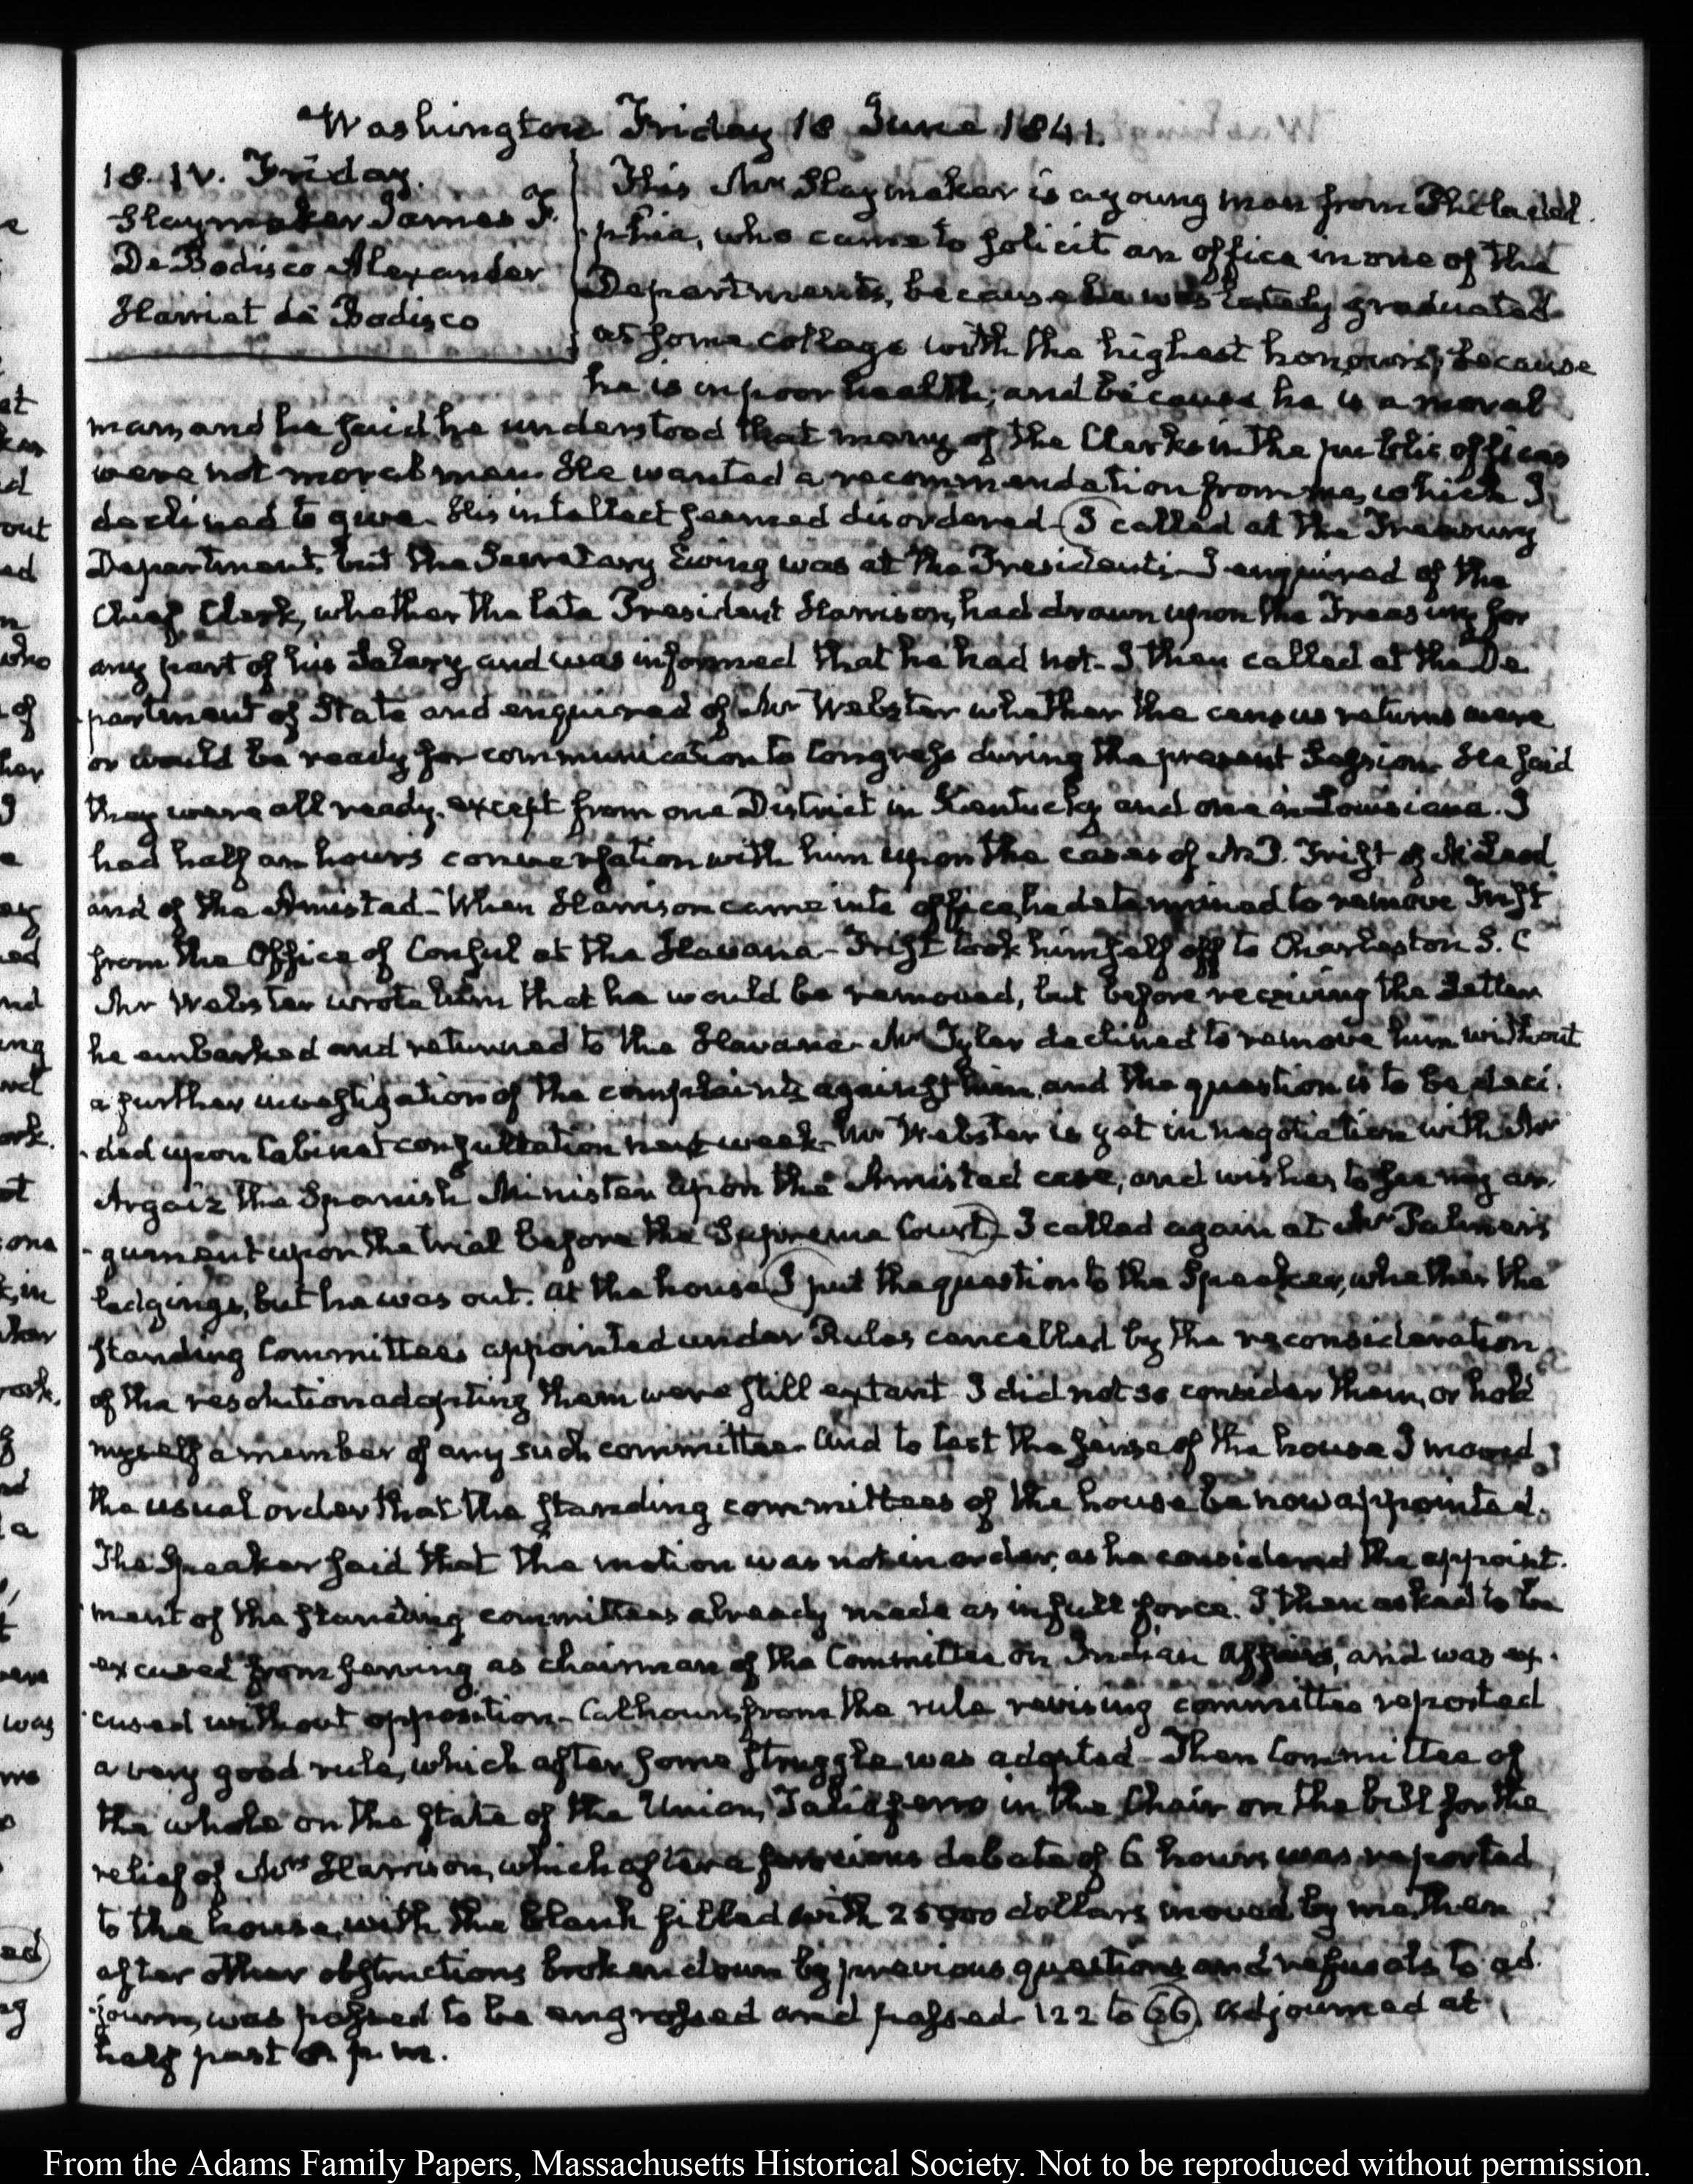 Washington Friday 18 June 1841.
18. IV. Friday.
Slaymaker James F.
De Bodisco Alexander
Harriet de Bodisco
This Mr Slaymaker is a young man from Philadel
phia, who came to solicit an office in one of the
Departments, because he was lately graduated
at some college with the highest honours, because
he is in poor health; and because he is a moral
man, and he said he understood that many of the Clerks in the public offices
were not moral men. He wanted a recommendation from me, which I
declined to give. His intellect seemed disordered— I called at the Treasury
Department, but the Secretary Ewing was at the President's— I enquired of the
Chief Clerk, whether the late President Harrison, had drawn upon the Treasury for
any part of his Salary and was informed that he had not— I then called at the De
partment of State and enquired of Mr Webster whether the census returns were
or would be ready for communication to Congress during the present Session. He said
they were all ready, except from one District in Kentucky and one in Louisiana. I
had half an hours conversation with him upon the cases of N. P. Trist of McLeod
and of the Amistad— When Harrison came into office he determined to remove Trist
from the Office of Consul at the Havana— Trist took himself off to Charleston S. C
Mr Webster wrote him that he would be removed, but before receiving the Letter
he embarked and returned to the Havana. Mr Tyler declined to remove him without
a further investigation of the complaints against him, and the question is to be deci
ded upon Cabinet consultation next week— Mr Webster is yet in negotiation with Mr
Argaiz the Spanish Minister upon the Amistad case, and wishes to see my ar
gument upon the trial before the Supreme Court— I called again at Mr Palmer's
lodgings, but he was out. At the house I put the question to the Speaker, whether the
standing Committees appointed under Rules cancelled by the reconsideration
of the resolution adopting them were still extant— I did not so consider them, or hold
myself a member of any such committee— And to test the sense of the house I moved
the usual order that the standing committees of the house be now appointed.
The Speaker said that the motion was not in order, as he considered the appoint
ment of the standing committees already made as in full force. I then asked to be
excused from serving as chairman of the Committee on Indian Affairs, and was ex
cused without opposition— Calhoun, from the rule revising committee reported
a very good rule, which after some struggle was adopted— Then Committee of
the whole on the state of the Union, Taliaferro in the Chair on the bill for the
relief of Mrs Harrison, which after a furious debate of 6 hours was reported
to the house, with the blank filled with 25000 dollars moved by me, then
after other obstructions broken down by previous questions and refusals to ad
journ, was passed to be engrossed and passed— 122 to 66. Adjourned at
half past p. m.
From the Adams Family Papers, Massachusetts Historical Society. Not to be reproduced without permission.